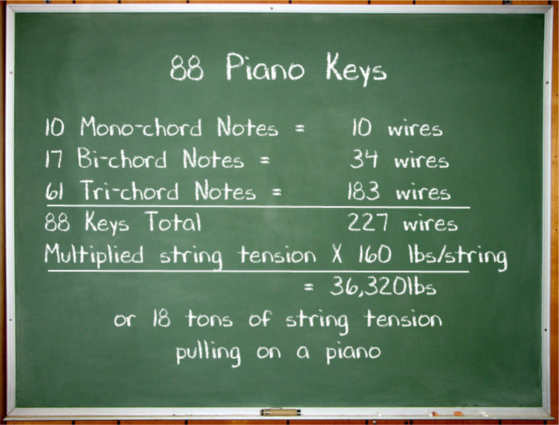 88 Piano Keys
10 Mono-chord Notes = 10 wires
17 Bi-chord Notes = 34 wires
61 Tri-chord Notes = 183 wires
88 Keys Total 227 wires
Multiplied string tension X 160 lbs/string
= 36,320lbs
or 18 tons of string tension
pulling on a piano